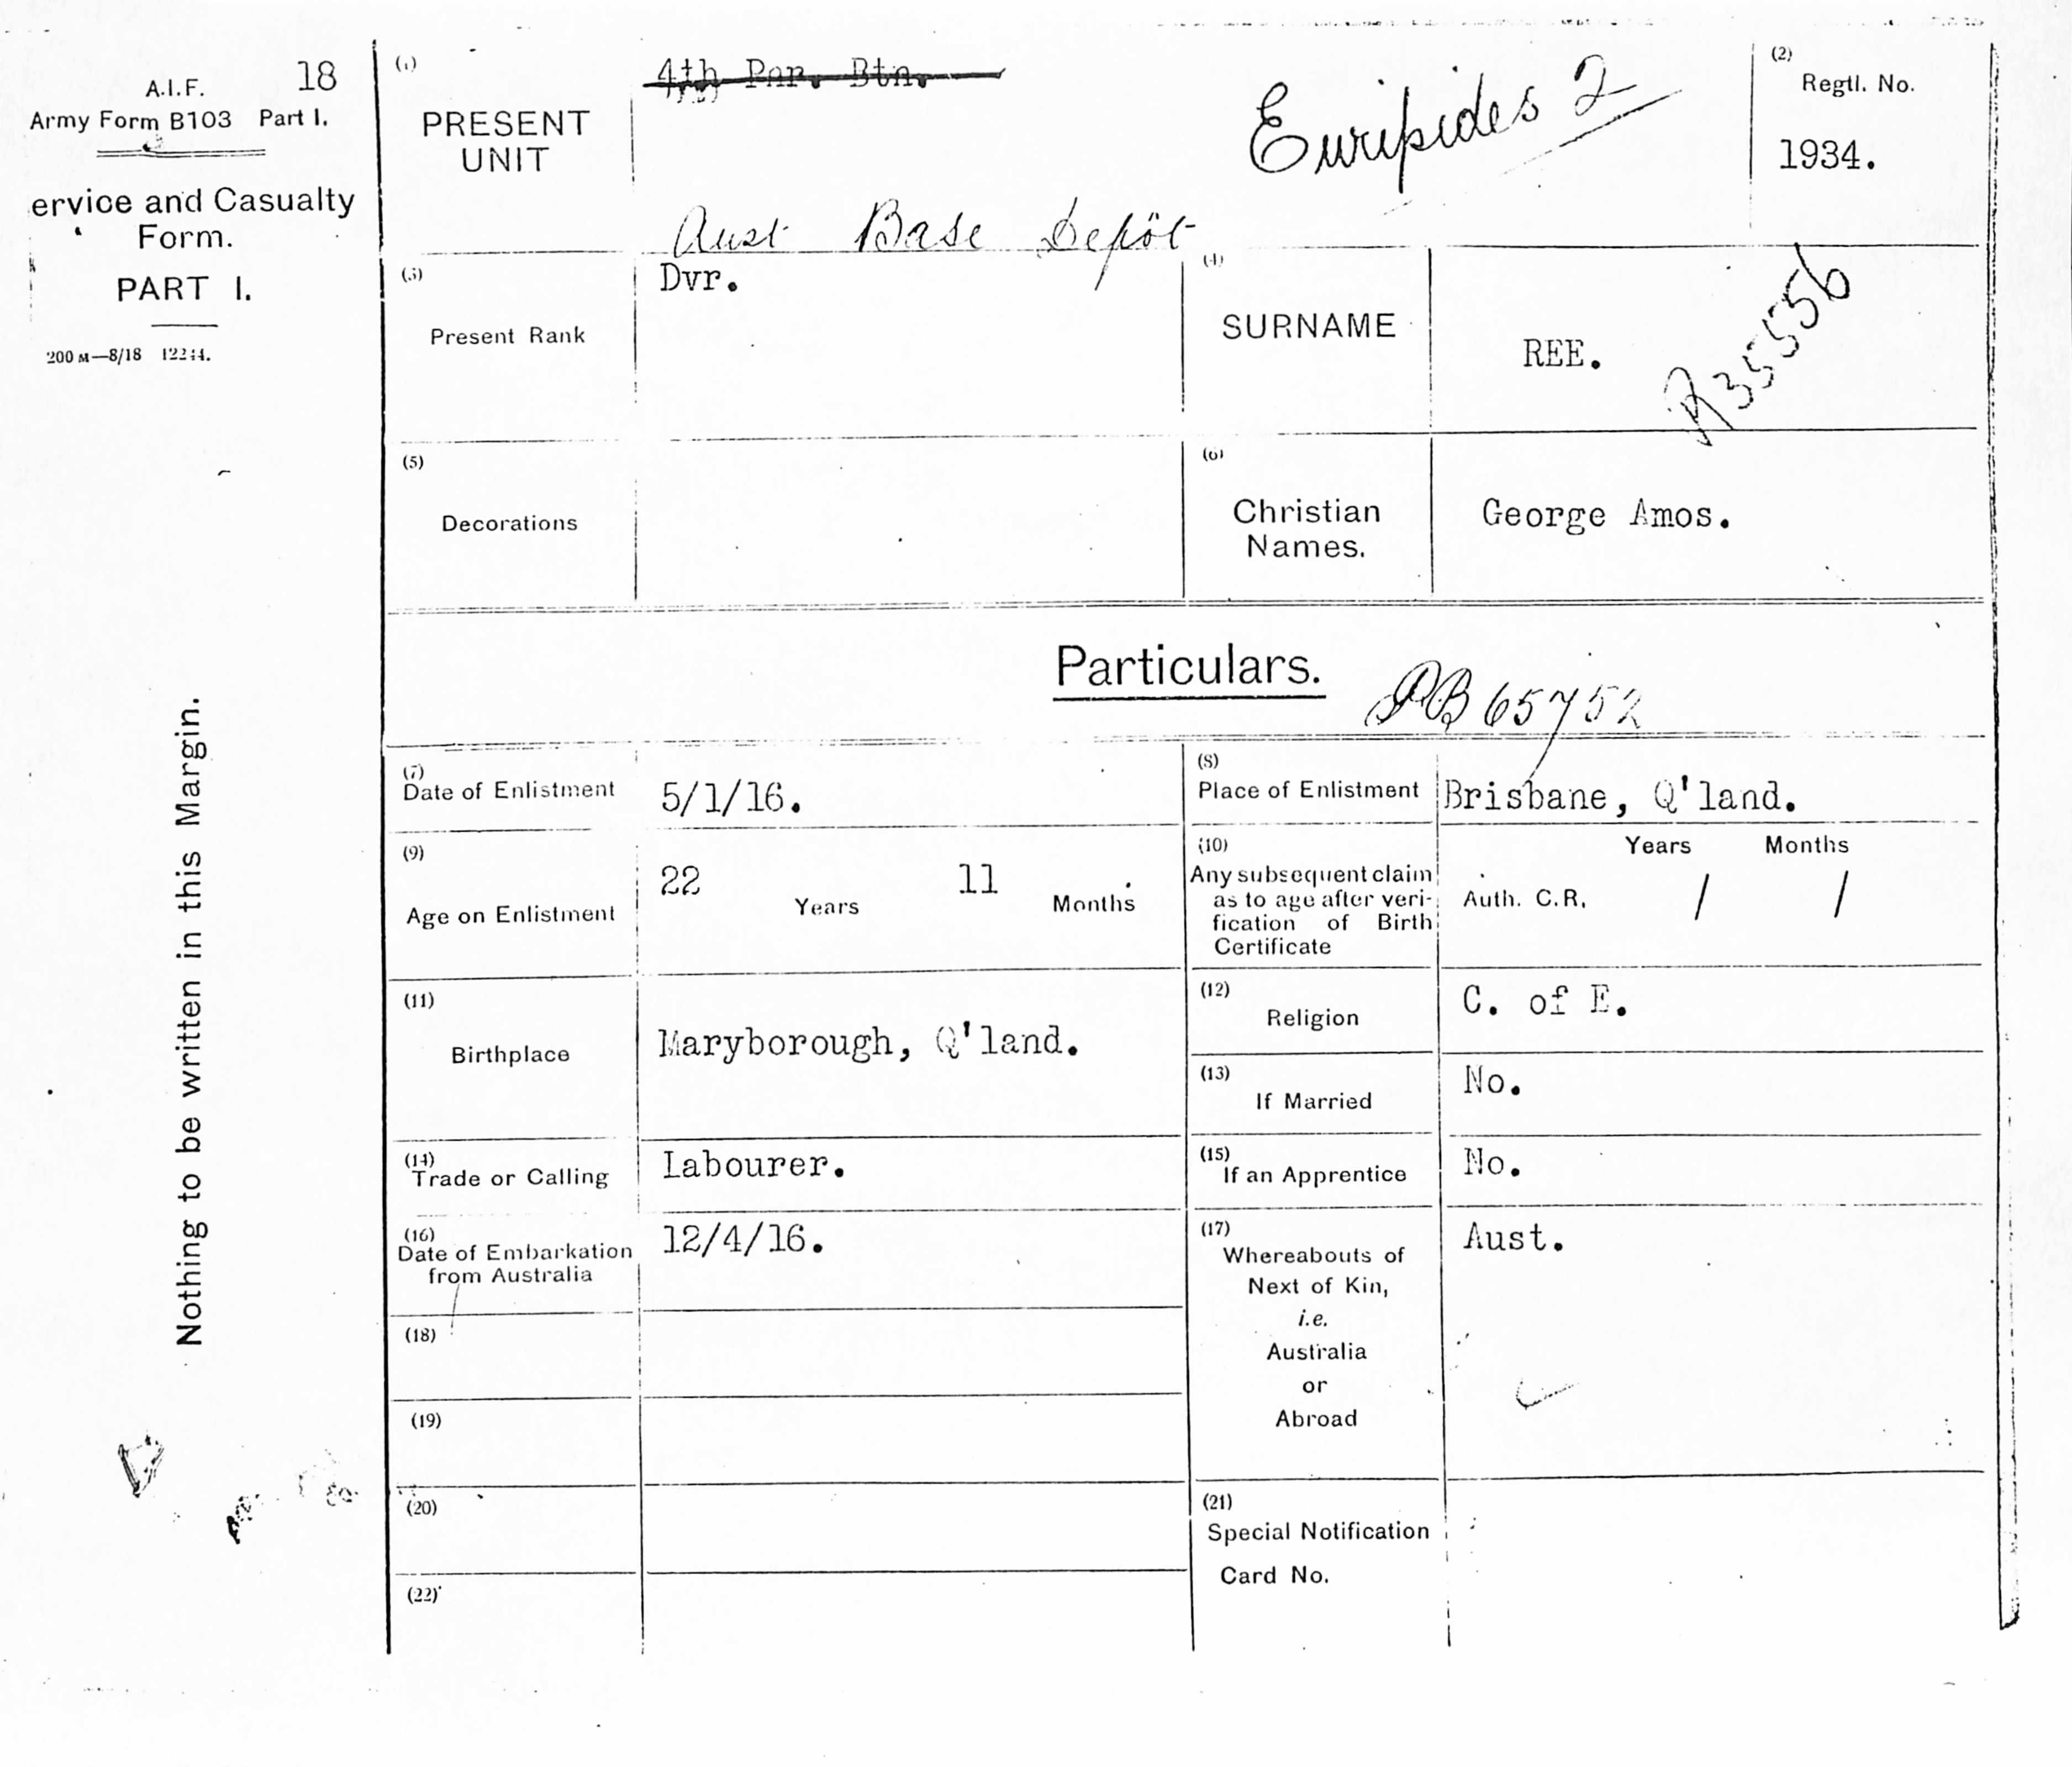 A.I.F. 18
Army Form B103 Part I.
ervice and Casualty
Form.
PART I.
200 M—8/18 12244.
Nothing to be written in this Margin.
(1)
PRESENT
UNIT
4th Pnr. Btn.
Aust Base Depôt
Euripides 2
(2)
Regtl. No.
1934.
(3)
Present Rank
Dvr.
(4)
SURNAME
REE.
R35556
(5)
Decorations
(6)
Christian
Names.
George Amos.
Particulars.
PB 65752
(7)
Date of Enlistment
5/1/16.
(8)
Place of Enlistment
Brisbane, Q'land.
(9)
Age on Enlistment
22 Years 11 Months
(10)
Any subsequent claim
as to age after veri-
fication of Birth
Certificate
Years Months
Auth. C.R. / /
(11)
Birthplace
Maryborough, Q'land.
(12)
Religion
C. of E.
(13)
If Married
No.
(14)
Trade or Calling
Labourer.
(15)
If an Apprentice
No.
(16)
Date of Embarkation
from Australia
12/4/16.
(17)
Whereabouts of
Next of Kin,
i.e.
Australia
or
Abroad
Aust.
(18)
(19)
(20)
(21)
Special Notification
Card No.
(22)